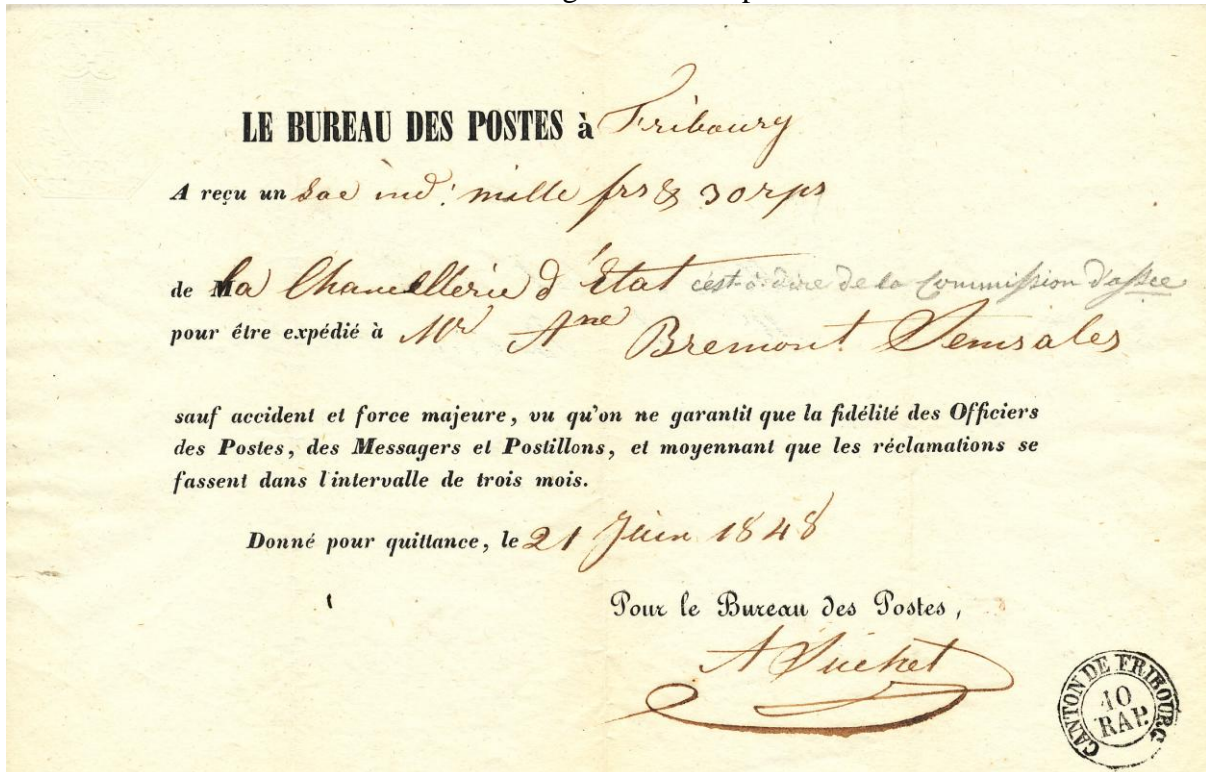 LE BUREAU DES POSTES à Fribourg
A reçu un Sac ind: mille frs & 30 rps
de Ma La Chancellerie d'État c'est-à-dire de la Commission d'assce
pour être expédié à Mr Ane Bremont Semsales
sauf accident et force majeure, vu qu'on ne garantit que la fidélité des Officiers
des Postes, des Messagers et Postillons, et moyennant que les réclamations se
fassent dans l'intervalle de trois mois.
Donné pour quittance, le 21 Juin 1848
Pour le Bureau des Postes,
A Suchet
CANTON DE FRIBOURG
10
RAP.